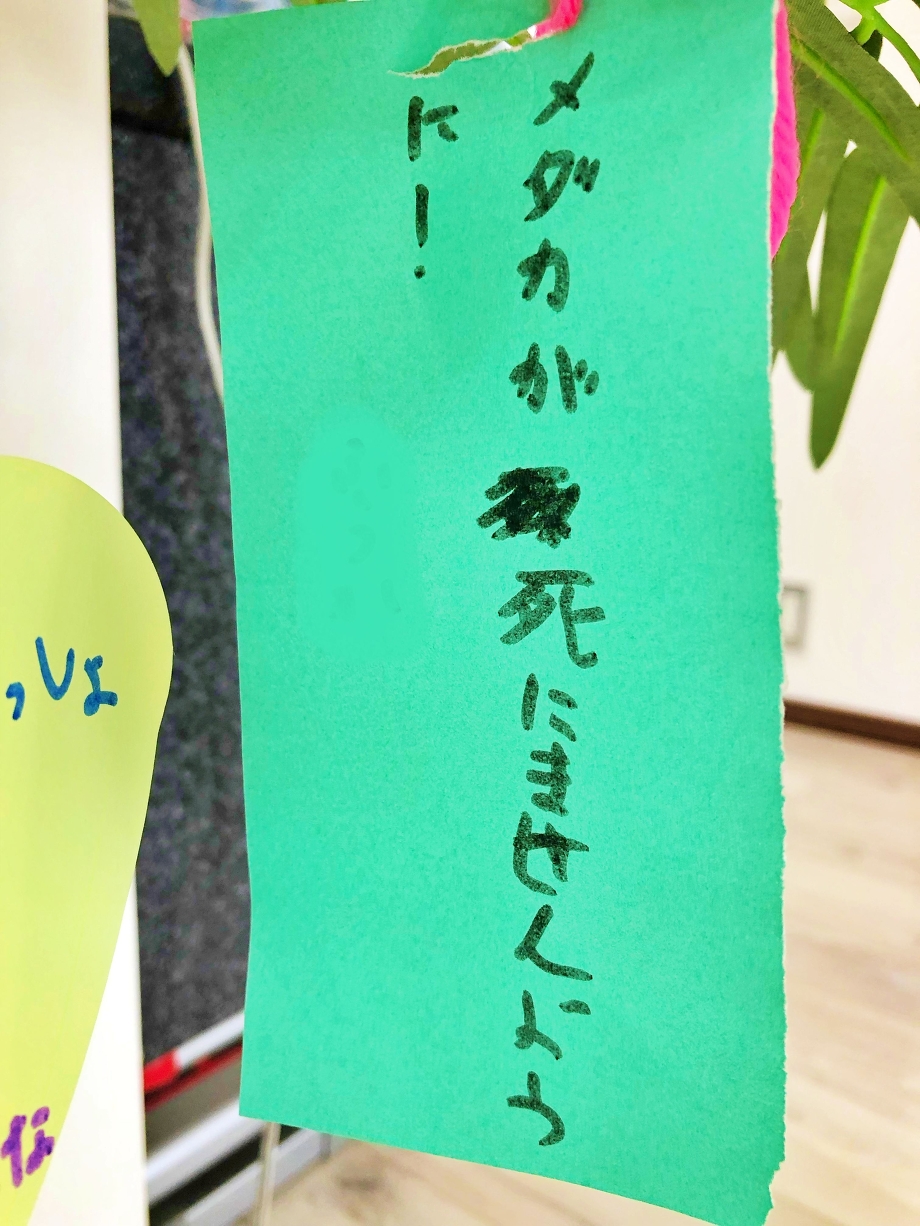 メダカが死にませんよう
に!
しょ
な